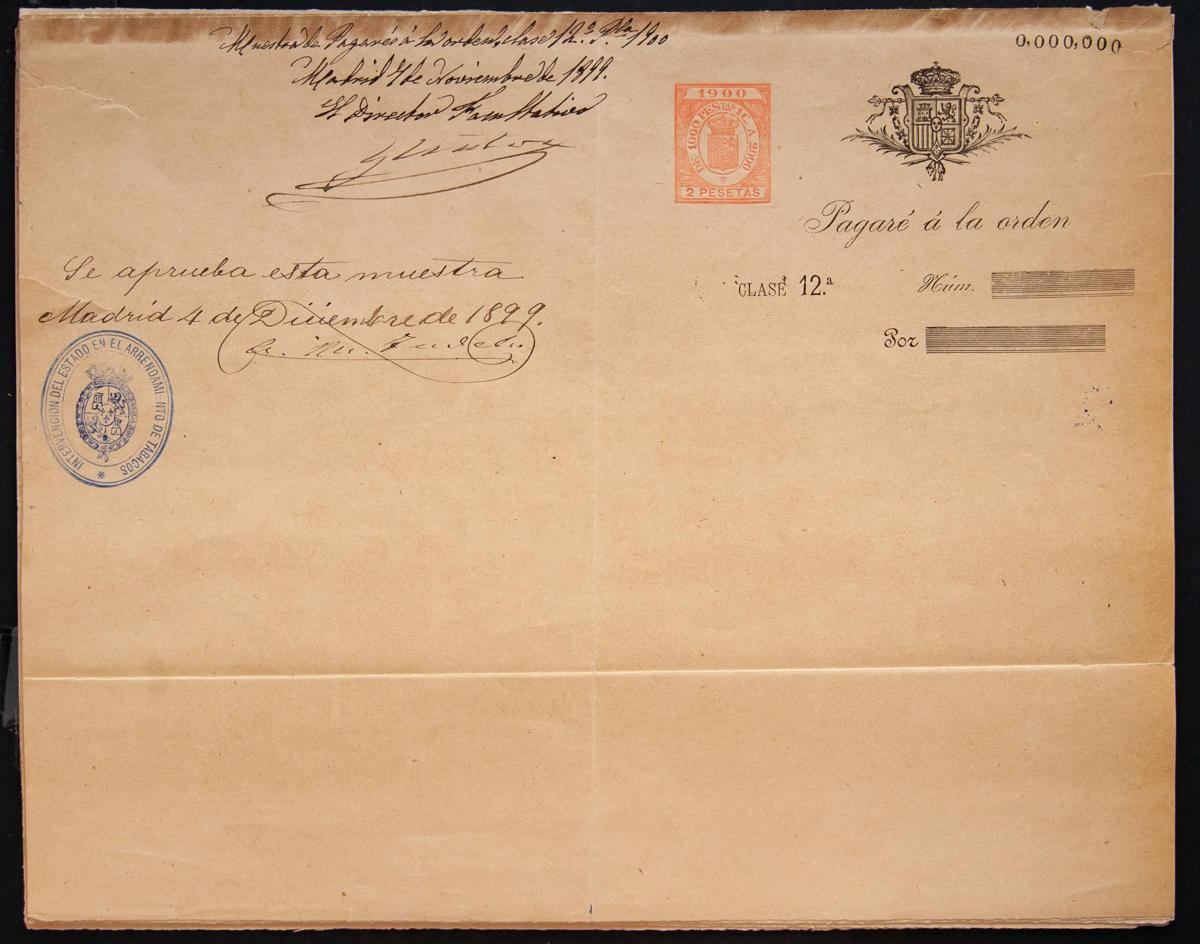 Muestra de Pagarés á la orden, clase 12ª Pla 1900
Madrid 7 de Noviembre de 1899.
El Director Facultativo
Se aprueba esta muestra
Madrid 4 de Diciembre de 1899.
INTERVENCION DEL ESTADO EN EL ARRENDAMI NTO DE TABACOS
0,000,000
1900
DE 1000 PESTAS 1C. A 2000
2 PESETAS
Pagaré á la orden
CLASE 12.ª Núm.
Por